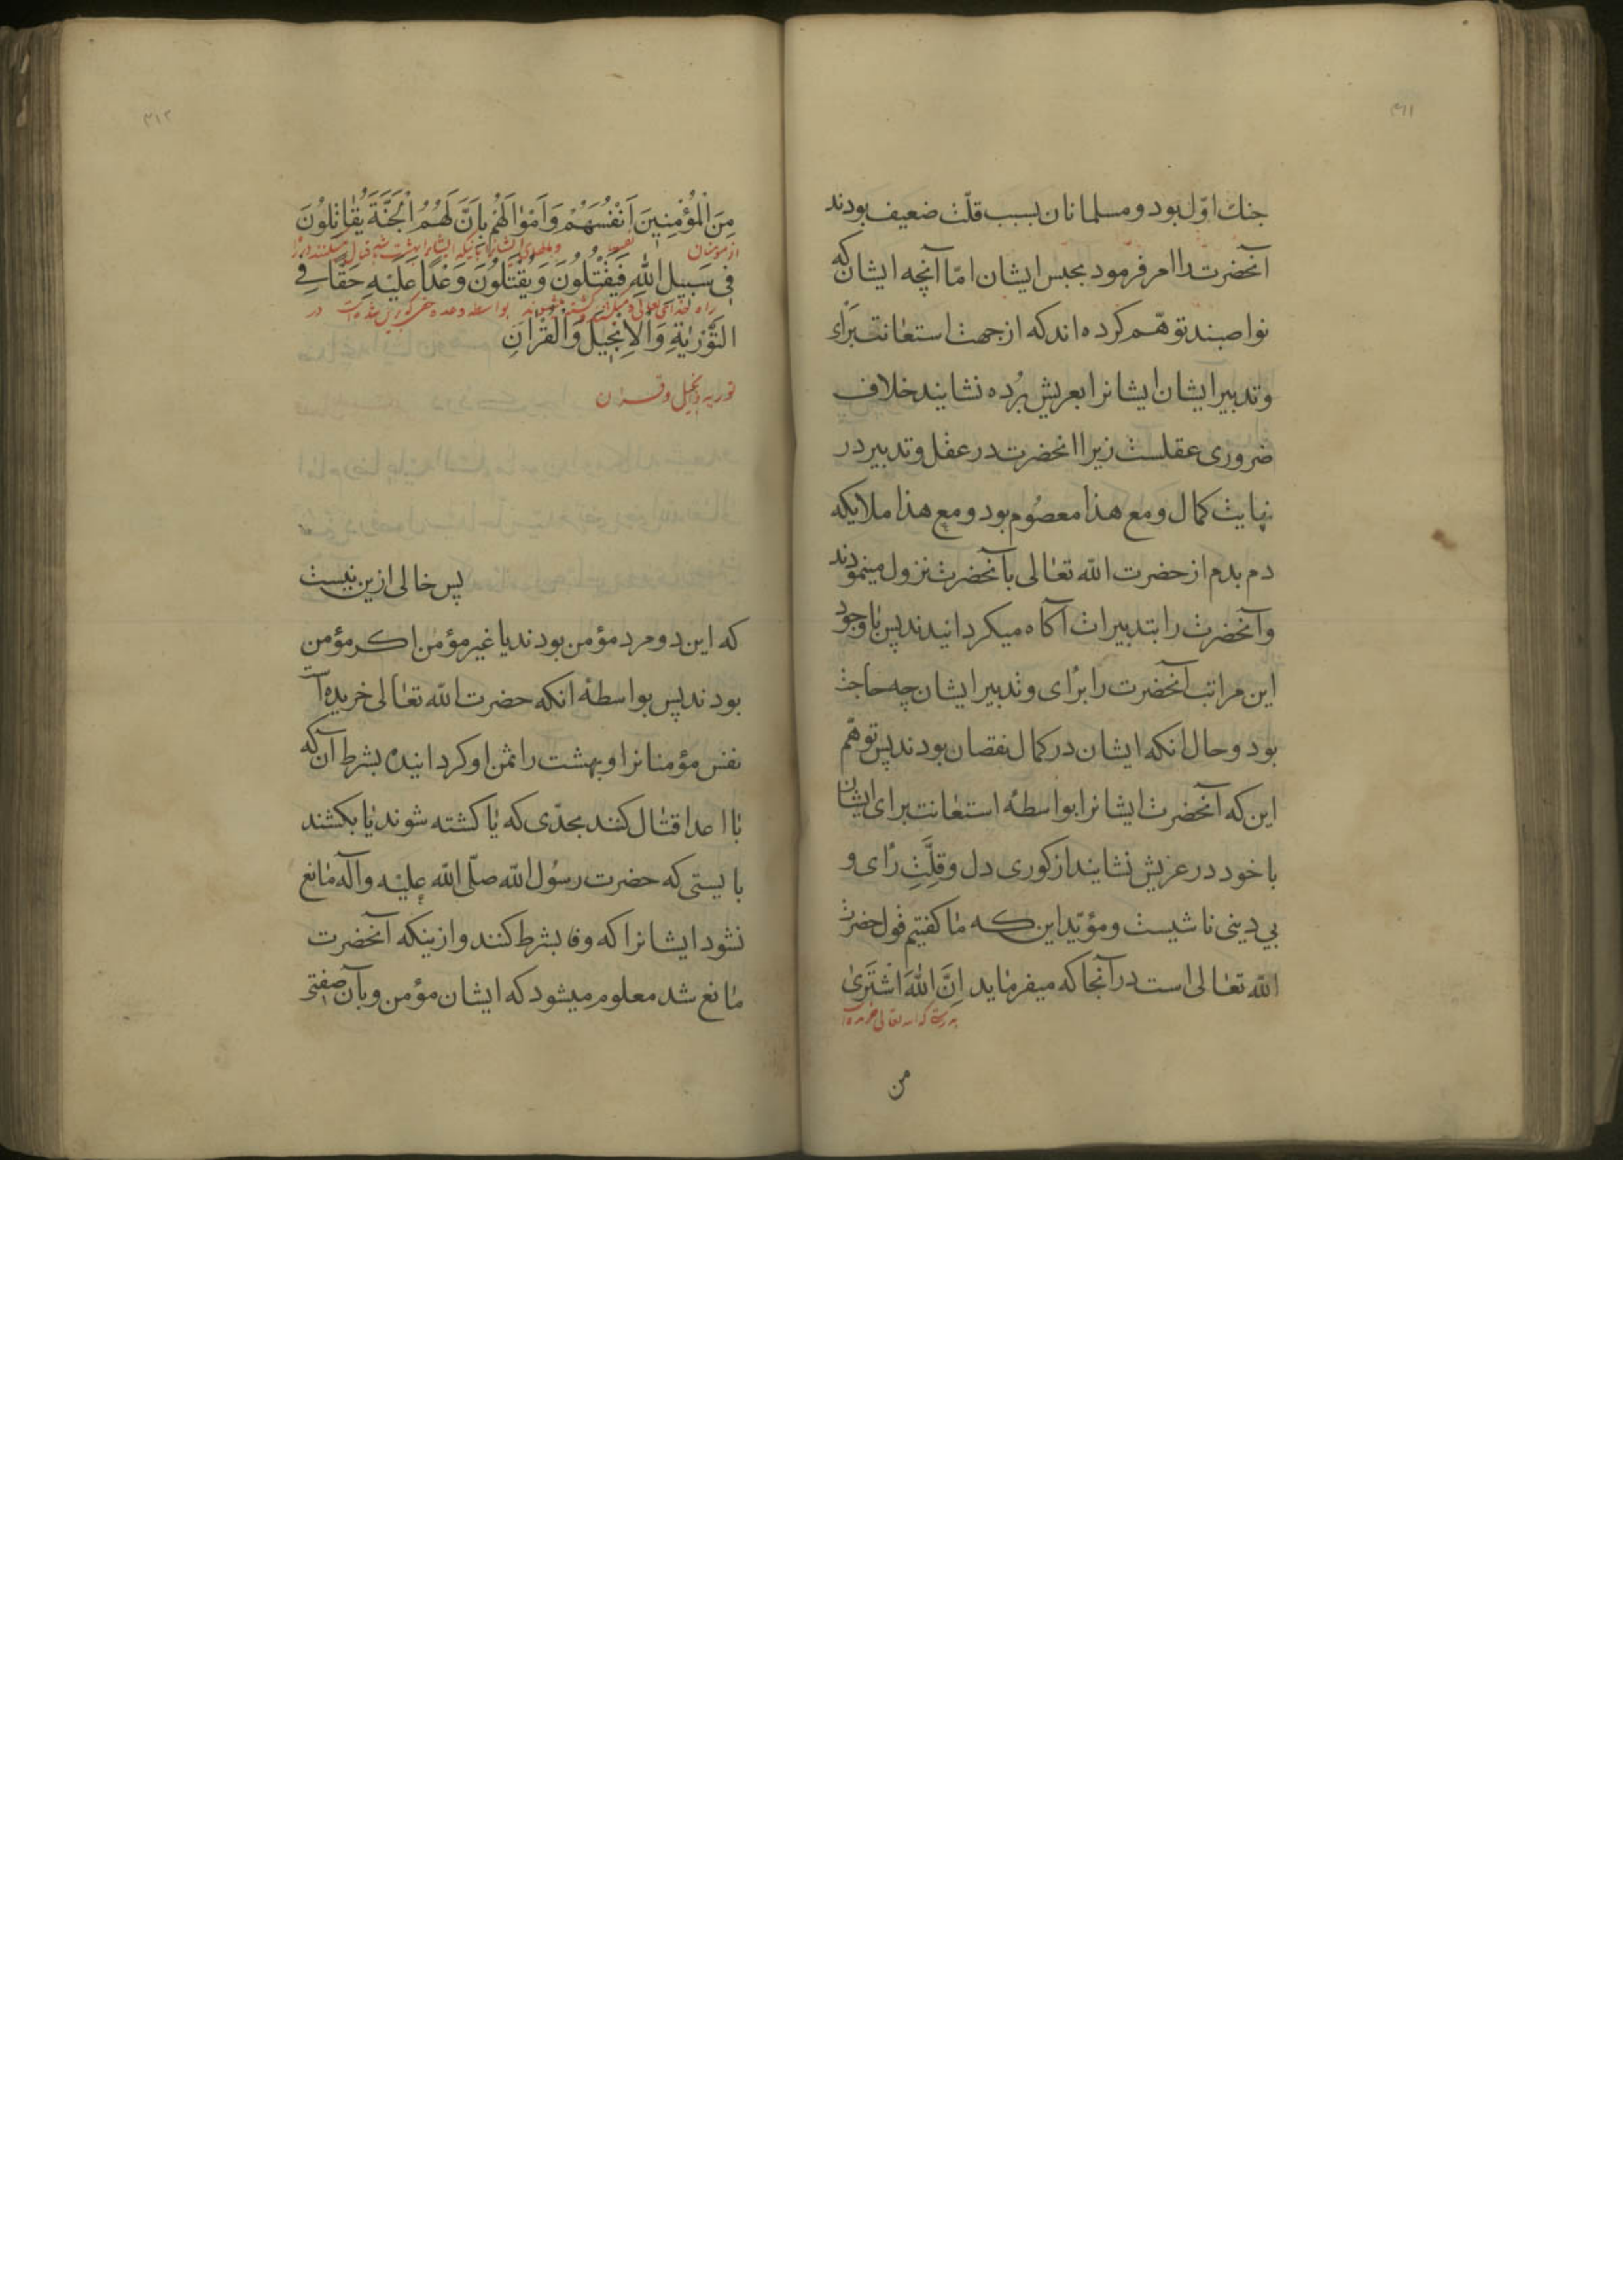 ۳۱۱
جنك اوّل بود و مسلمانان بسبب قلّت ضعیف بودند
آنحضرت را امر فرمود بحبس ایشان امّا آنچه ایشان که
نواصبند توهّم کرده اند که از جهت استعانت برای
و تدبیر ایشان ایشانرا بعریش بُرده نشایند خلاف
ضروری عقلست زیرا انحضرت در عقل و تدبیر در
نهایت کمال و مع هذا معصُوم بود و مع هذا ملایکه
دم بدم از حضرت الله تعالی بآنحضرت نزول مینمودند
و آنحضرت را بتدبیرات آکاه میکردانیدند پس با وجود
این مراتب آنحضرت را برای و تدبیر ایشان چه حاجت
بود و حال انکه ایشان در کمال نقصان بودند پس توهّم
این که آنحضرت ایشانرا بواسطهٔ استعانت برای ایشان
با خود در عریش نشایند از کوری دل و قلّتِ رای و
بی دینی ناشیست و مؤیّد این که ما کفتیم قول حضرت
الله تعالی است در آنجا که میفرماید اِنَّ اللهَ اشْتَریٰ
بدرستی که الله تعالی خریده
من
۳۱۲
مِنَ الْمُؤْمِنِینَ اَنْفُسَهُمْ وَاَمْوٰالَهُمْ بِاَنَّ لَهُمُ الْجَنَّةَ یُقٰاتِلُونَ
از مومنان نفسها و مالهای ایشانرا باینکه ایشانرا بهشت باشد قتال میکنند در
فِی سَبِیلِ اللهِ فَیَقْتُلُونَ وَیُقْتَلُونَ وَعْدًا عَلَیْهِ حَقًّا فِی
راه خدای تعالی و میکشند و کشته میشوند بواسطه وعده حق که در
التَّوْرٰیةِ وَالْاِنْجِیلِ وَالْقُرْاٰنِ
توریه و انجیل و قرآن
پس خالی ازین نیست
که این دو مرد مؤمن بودند یا غیر مؤمن اکر مؤمن
بودند پس بواسطهٔ انکه حضرت الله تعالی خریده است
نفس مؤمنانرا و بهشت را ثمن او کردانیده بشرط آن که
با اعدا قتال کنند بحدّی که یا کشته شوند یا بکشند
بایستی که حضرت رسُول الله صلّی الله علیْه و آله مانع
نشود ایشانرا که وفا بشرط کنند و ازینکه آنحضرت
مانع شد معلوم میشود که ایشان مؤمن و بآن صفتی